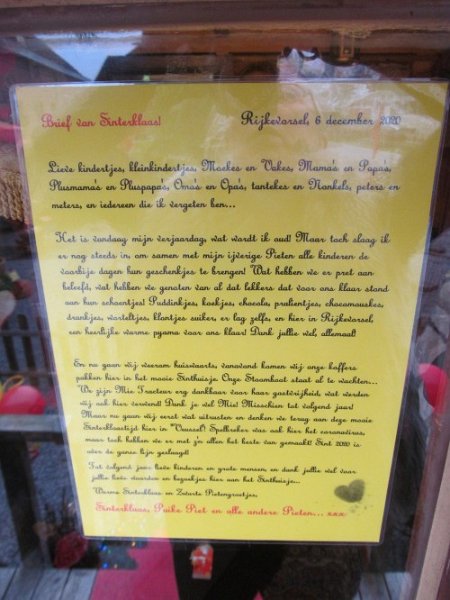 Brief van Sinterklaas!
Rijkevorsel, 6 december 2020
Lieve kindertjes, kleinkindertjes, Moekes en Vakes, Mama's en Papa's,
Plusmama's en Pluspapa's, Oma's en Opa's, tantekes en Nonkels, peters en
meters, en iedereen die ik vergeten ben...
Het is vandaag mijn verjaardag, wat wordt ik oud! Maar toch slaag ik
er nog steeds in om samen met mijn ijverige Pieten alle kinderen de
voorbije dagen hun geschenkjes te brengen! Wat hebben we er pret aan
beleefd, wat hebben we genoten van al dat lekkers dat voor ons klaar stond
aan hun schoentjes! Puddinkjes, koekjes, chocola, pralientjes, chocomouskes,
drankjes, worteltjes, klontjes suiker, er lag zelfs, en hier in Rijkevorsel,
een heerlijke warme pyama voor ons klaar! Dank jullie wel, allemaal!
En nu gaan wij weerom huiswaarts, vanavond komen wij onze koffers
pakken hier in het mooie Sinthuisje. Onze Stoomboot staat al te wachten...
We zijn Mie Tracteur erg dankbaar voor haar gastvrijheid, wat werden
wij ook hier verwend! Dank je wel Mie! Misschien tot volgend jaar!
Maar nu gaan wij eerst wat uitrusten en denken we terug aan deze mooie
Sinterklaastijd hier in "Veussel"! Spelbreker was ook hier het coronavirus,
maar toch hebben we er met z'n allen het beste van gemaakt! Sint 2020 is
over de ganse lijn geslaagd!
Tot volgend jaar lieve kinderen en grote mensen en dank jullie wel voor
jullie lieve woorden en bezoekjes hier aan het Sinthuisje...
Warme Sinterklaas- en Zwarte Pietengroetjes,
Sinterklaas, Paike Piet en alle andere Pieten... xxx